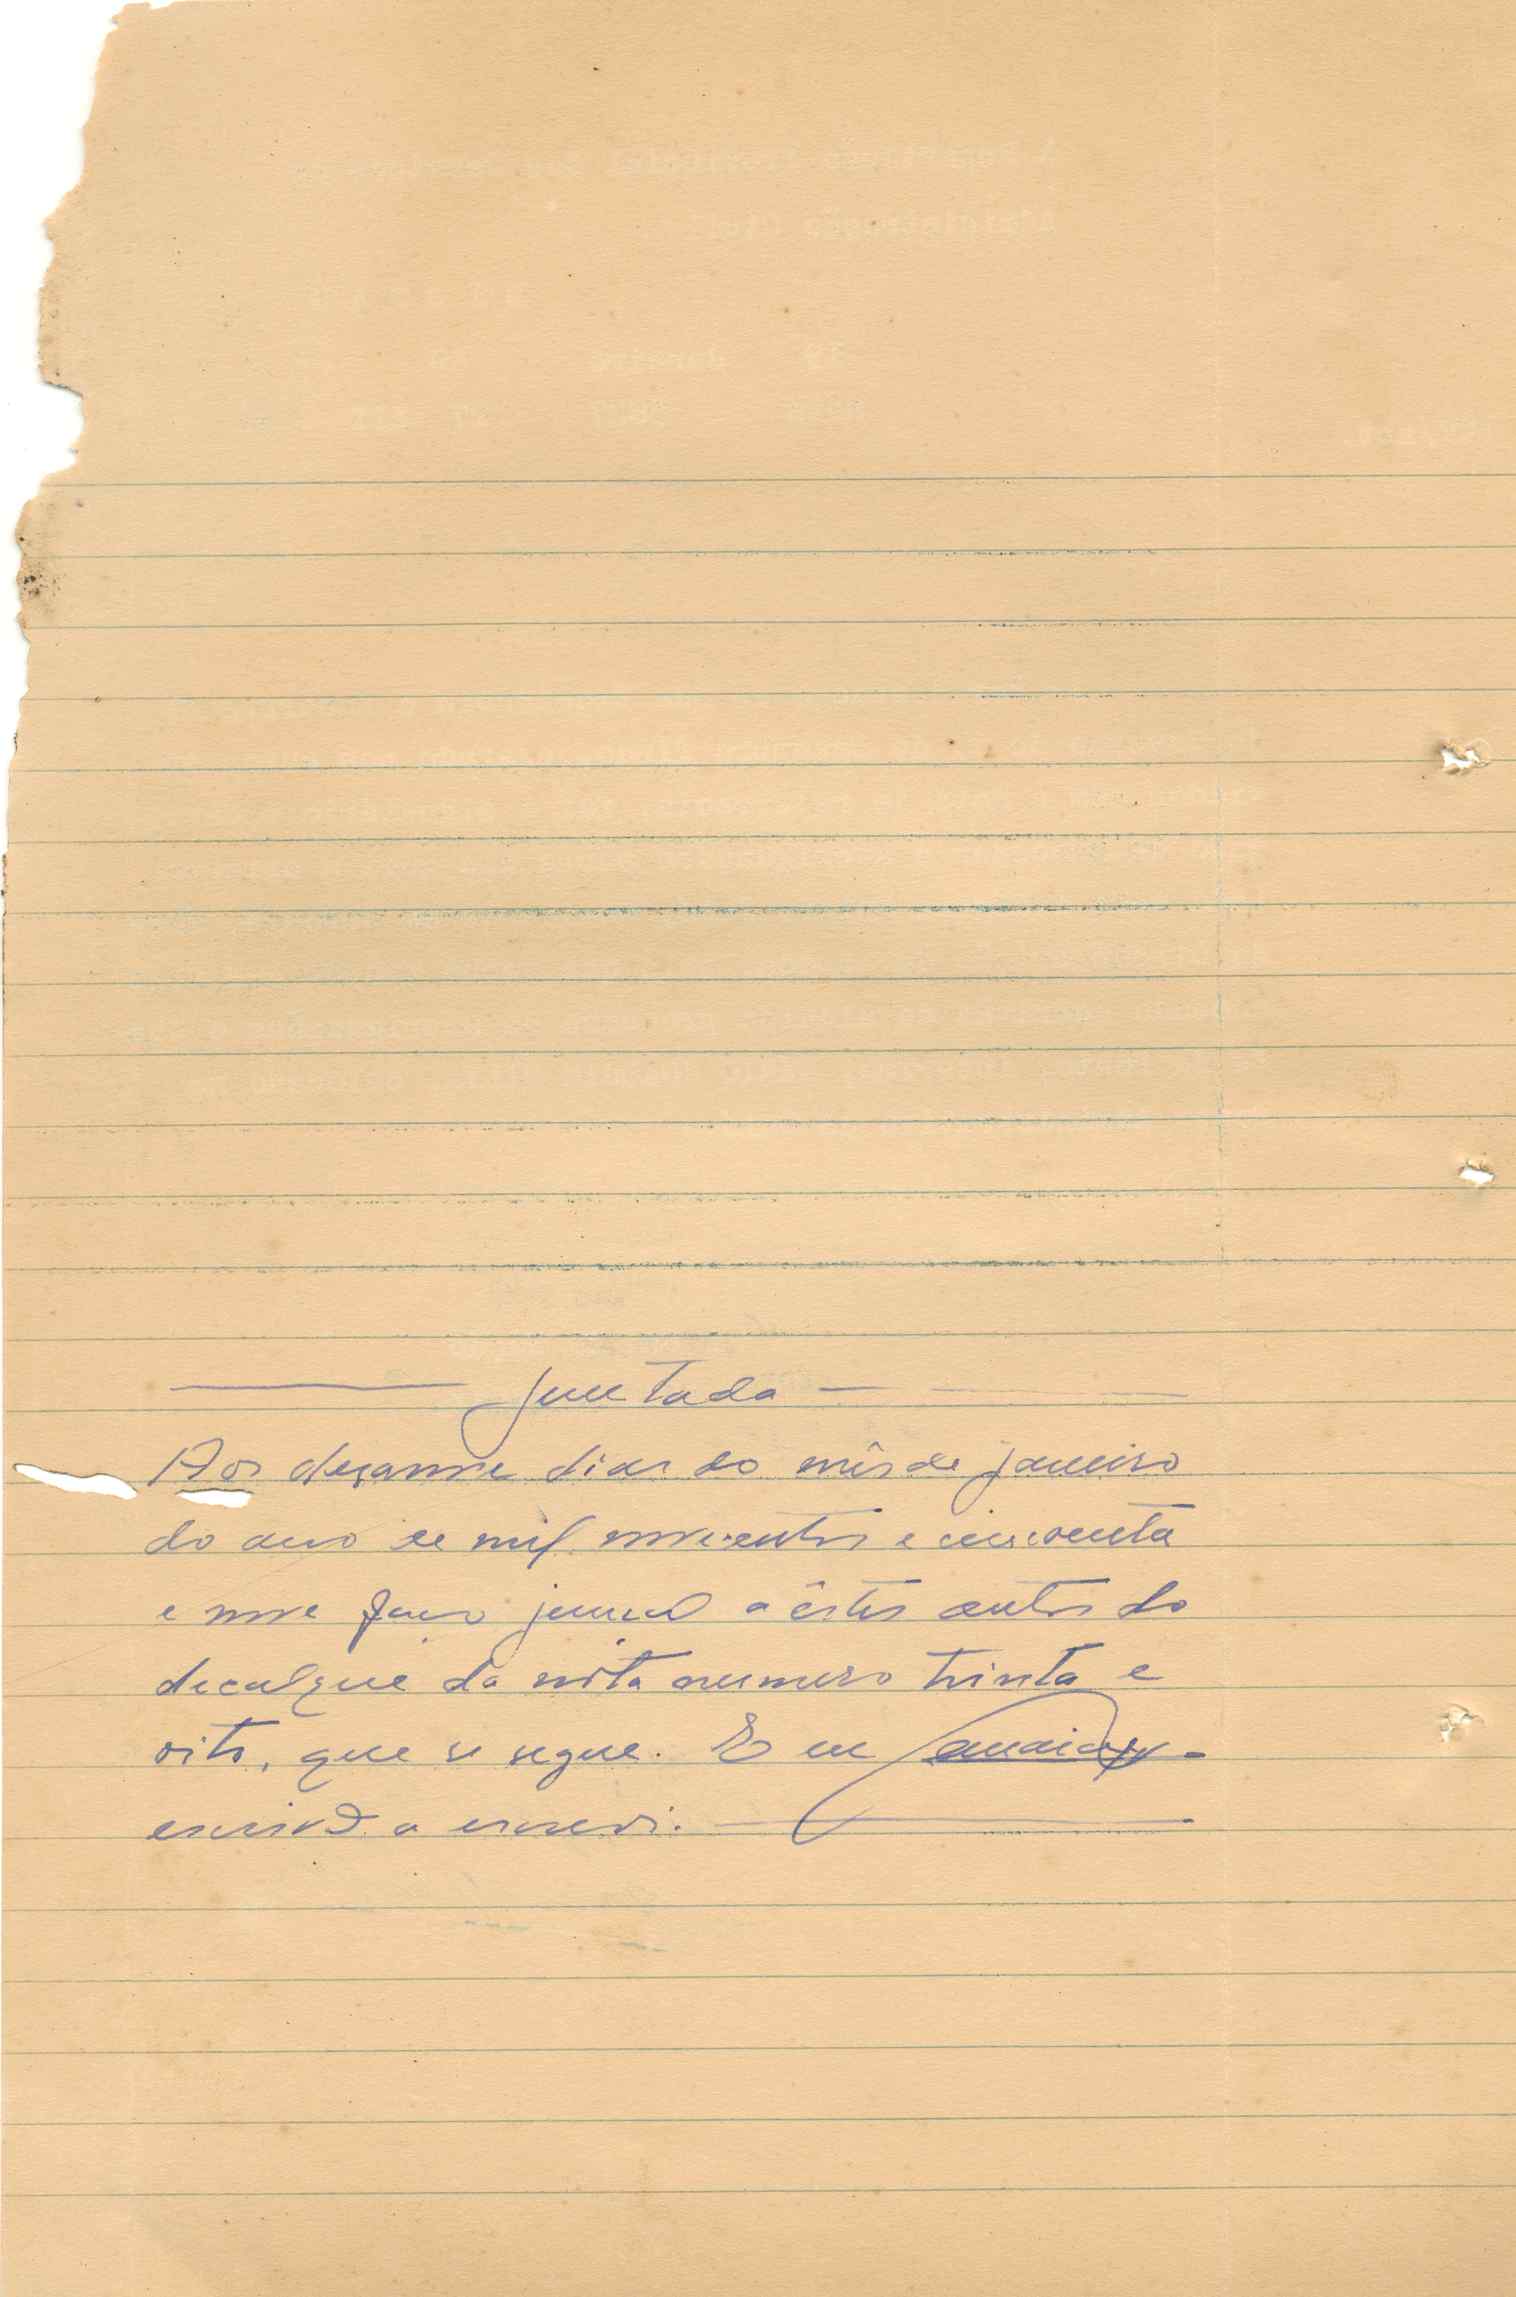 Juntada
Aos dezanove dias do mês de janeiro
do ano de mil novecentos e cincoenta
e nove faço juncal a êstes autos do
decalque da nota numero trinta e
oito, que se segue. E eu
escrivão a escrevi.